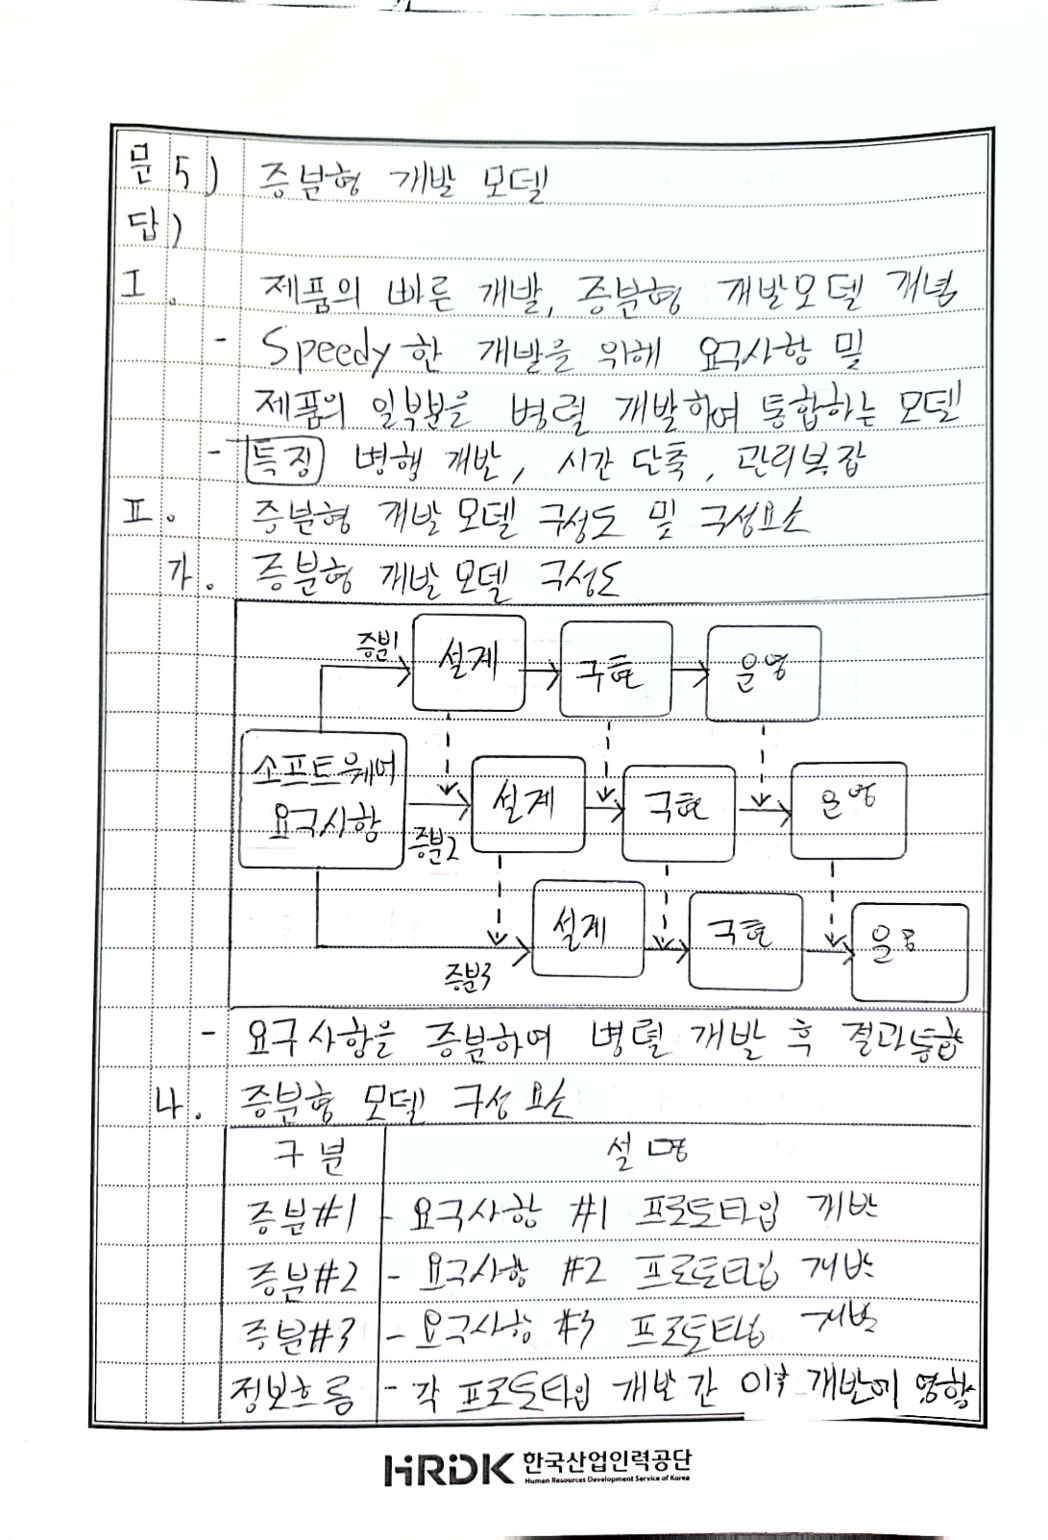 문 5) 증분형 개발 모델
답)
I. 제품의 빠른 개발, 증분형 개발모델 개념
- Speedy한 개발을 위해 요구사항 및
제품의 일부분을 병렬 개발하여 통합하는 모델
- 특징 병행 개발, 시간 단축, 관리복잡
II. 증분형 개발 모델 구성도 및 구성요소
가. 증분형 개발 모델 구성도
증분1 설계 구현 운영
소프트웨어
요구사항
증분2 설계 구현 운영
증분3 설계 구현 운영
- 요구사항을 증분하여 병렬 개발 후 결과통합
나. 증분형 모델 구성요소
구분 설명
증분#1 - 요구사항 #1 프로토타입 개발
증분#2 - 요구사항 #2 프로토타입 개발
증분#3 - 요구사항 #3 프로토타입 개발
정보흐름 - 각 프로토타입 개발간 이후 개발에 영향
HRDK 한국산업인력공단
Human Resources Development Service of Korea